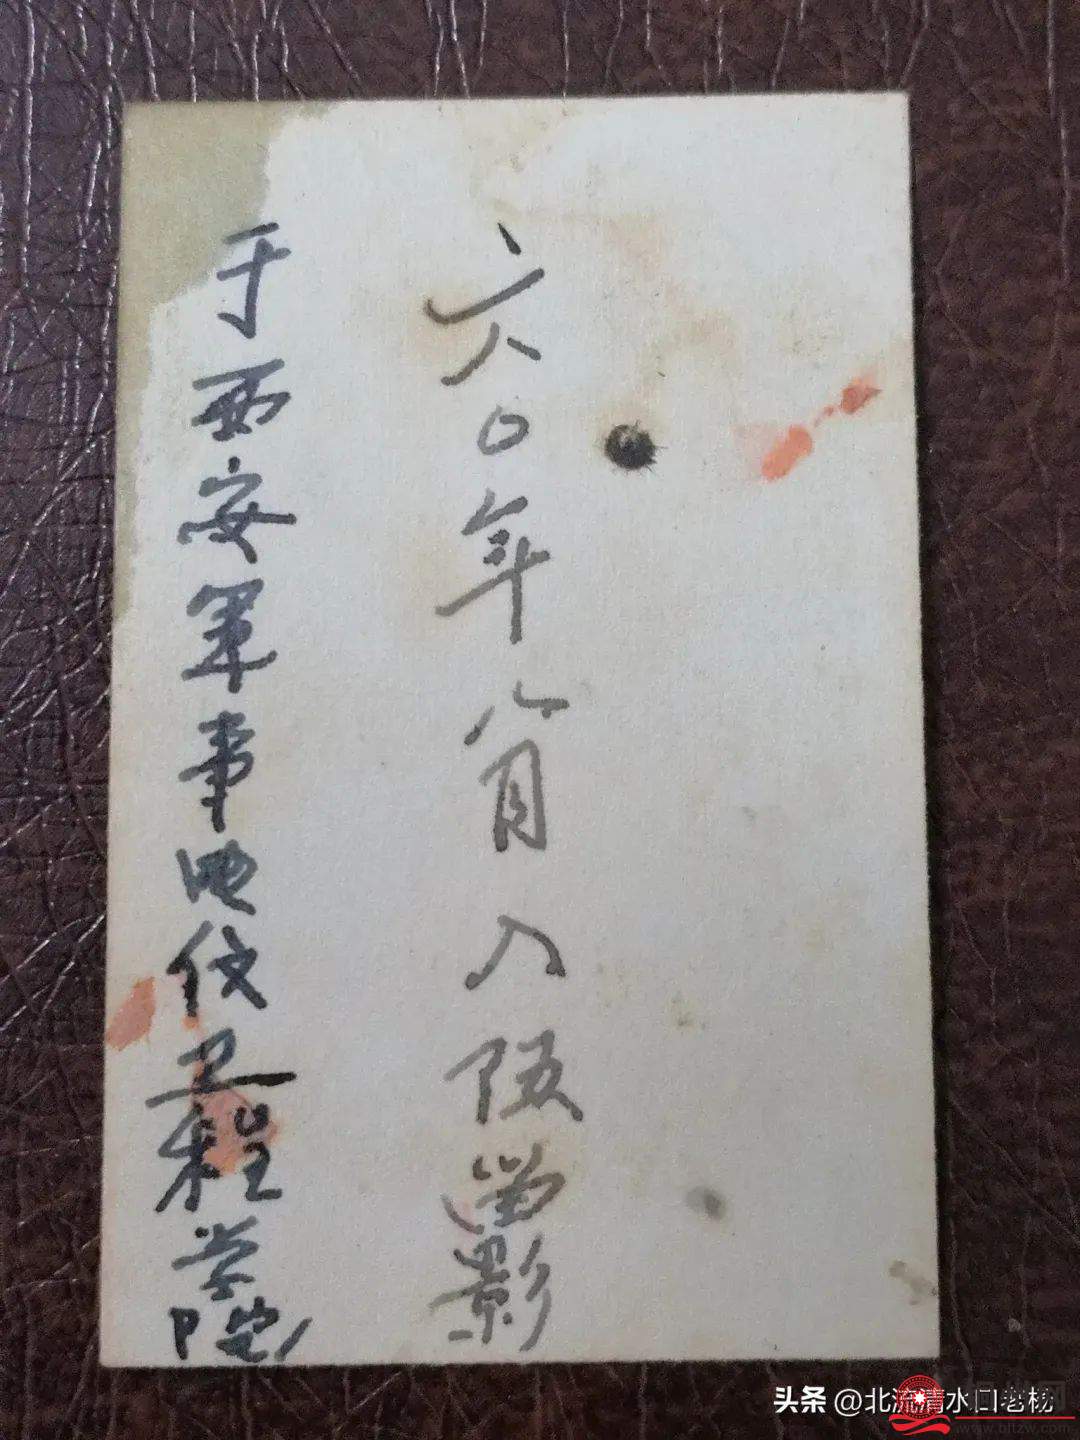 六〇年八月入伍留影
于西安军事电伩工程学院
头条 @北流清水口老杨
www.bltzw.com